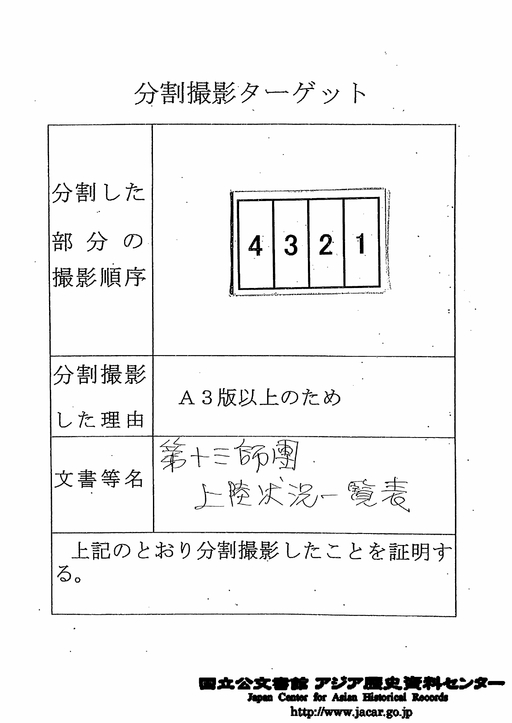 分割撮影ターゲット
分割した
部分の
撮影順序
4 3 2 1
分割撮影
した理由
A3版以上のため
文書等名
第十三師團
上陸状況一覧表
上記のとおり分割撮影したことを証明す
る。
国立公文書館 アジア歴史資料センター
Japan Center for Asian Historical Records
http://www.jacar.go.jp